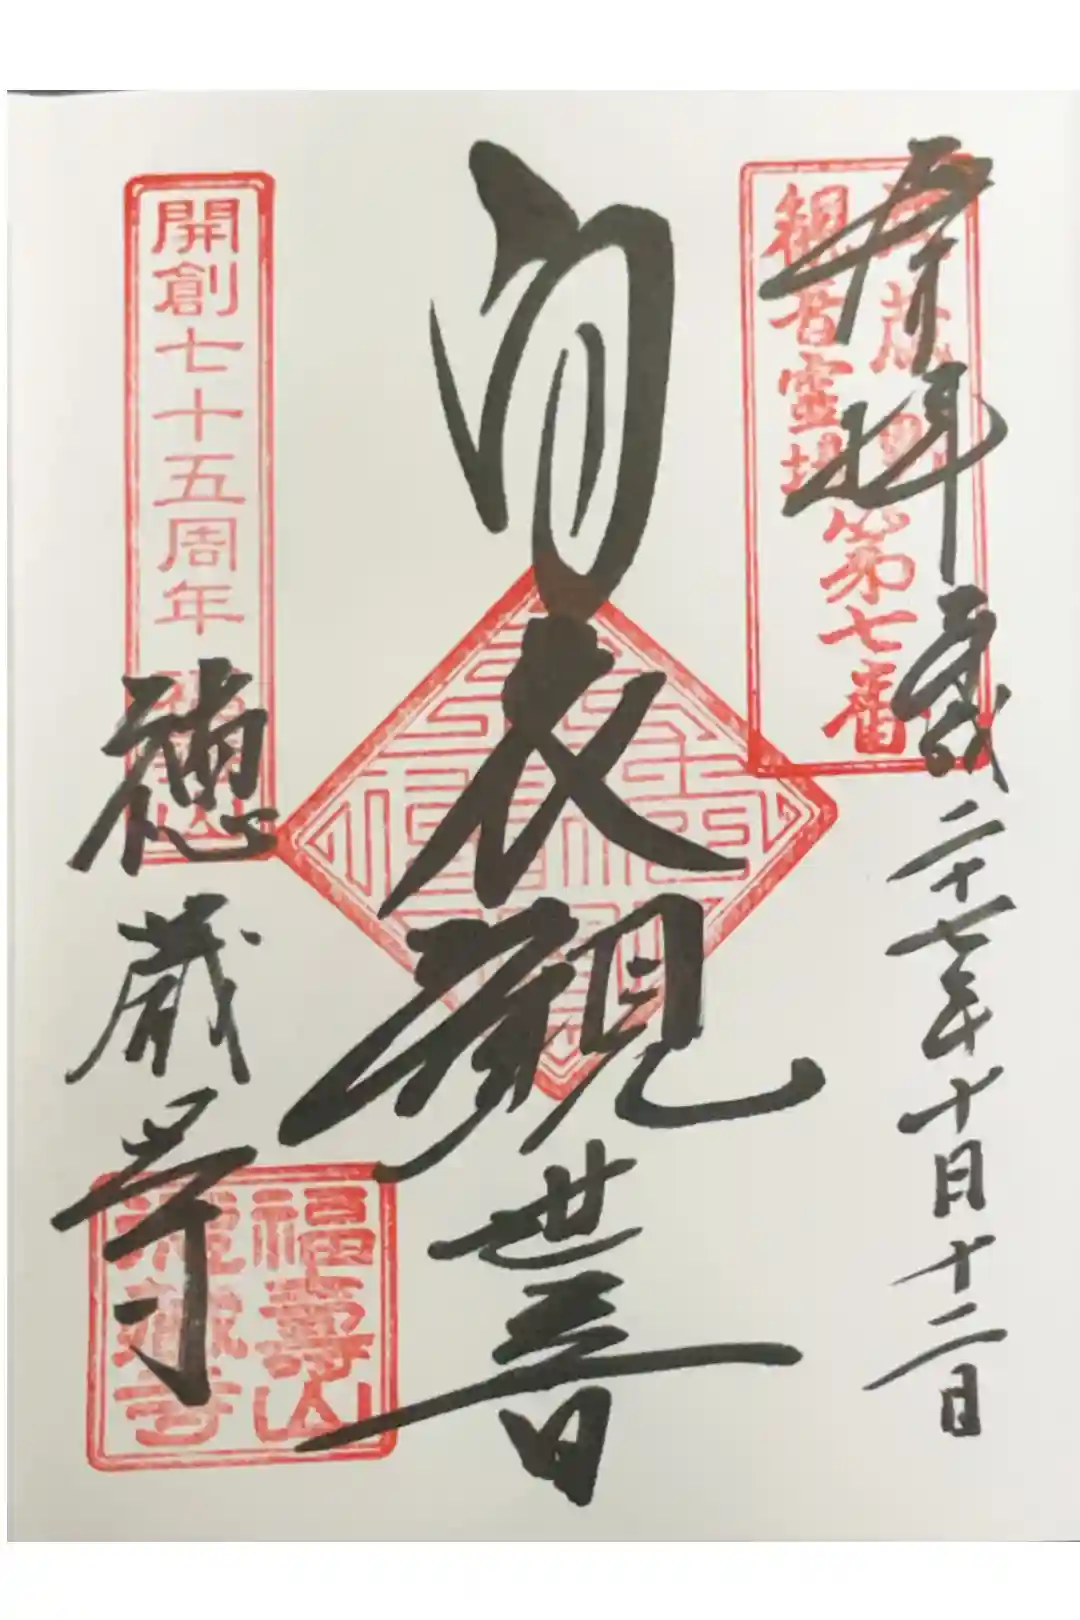 奉拝
平成二十七年十月十二日
武蔵野
観音霊場第七番
白衣観世音
開創七十五周年
徳蔵寺
福壽山
徳蔵寺